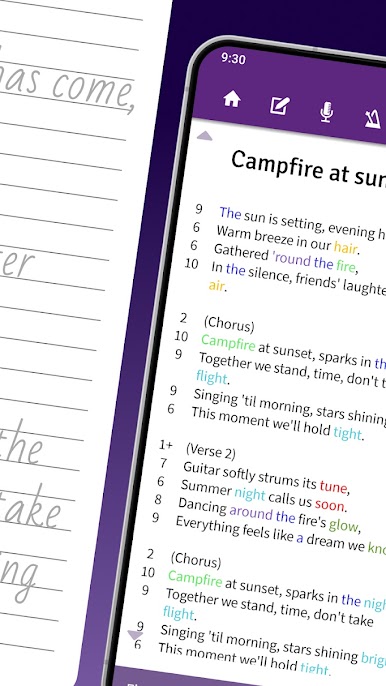 has come,
the
take
9:30
Campfire at sun
9 The sun is setting, evening h
6 Warm breeze in our hair.
6 Gathered 'round the fire,
10 In the silence, friends' laughte
air.
2 (Chorus)
10 Campfire at sunset, sparks in th
9 Together we stand, time, don't t
flight.
9 Singing 'til morning, stars shining
6 This moment we'll hold tight.
1+ (Verse 2)
7 Guitar softly strums its tune,
6 Summer night calls us soon.
8 Dancing around the fire's glow,
9 Everything feels like a dream we kno
2 (Chorus)
10 Campfire at sunset, sparks in the nigh
9 Together we stand, time, don't take
flight.
9 Singing 'til morning, stars shining brig
6 This moment we'll hold tight.